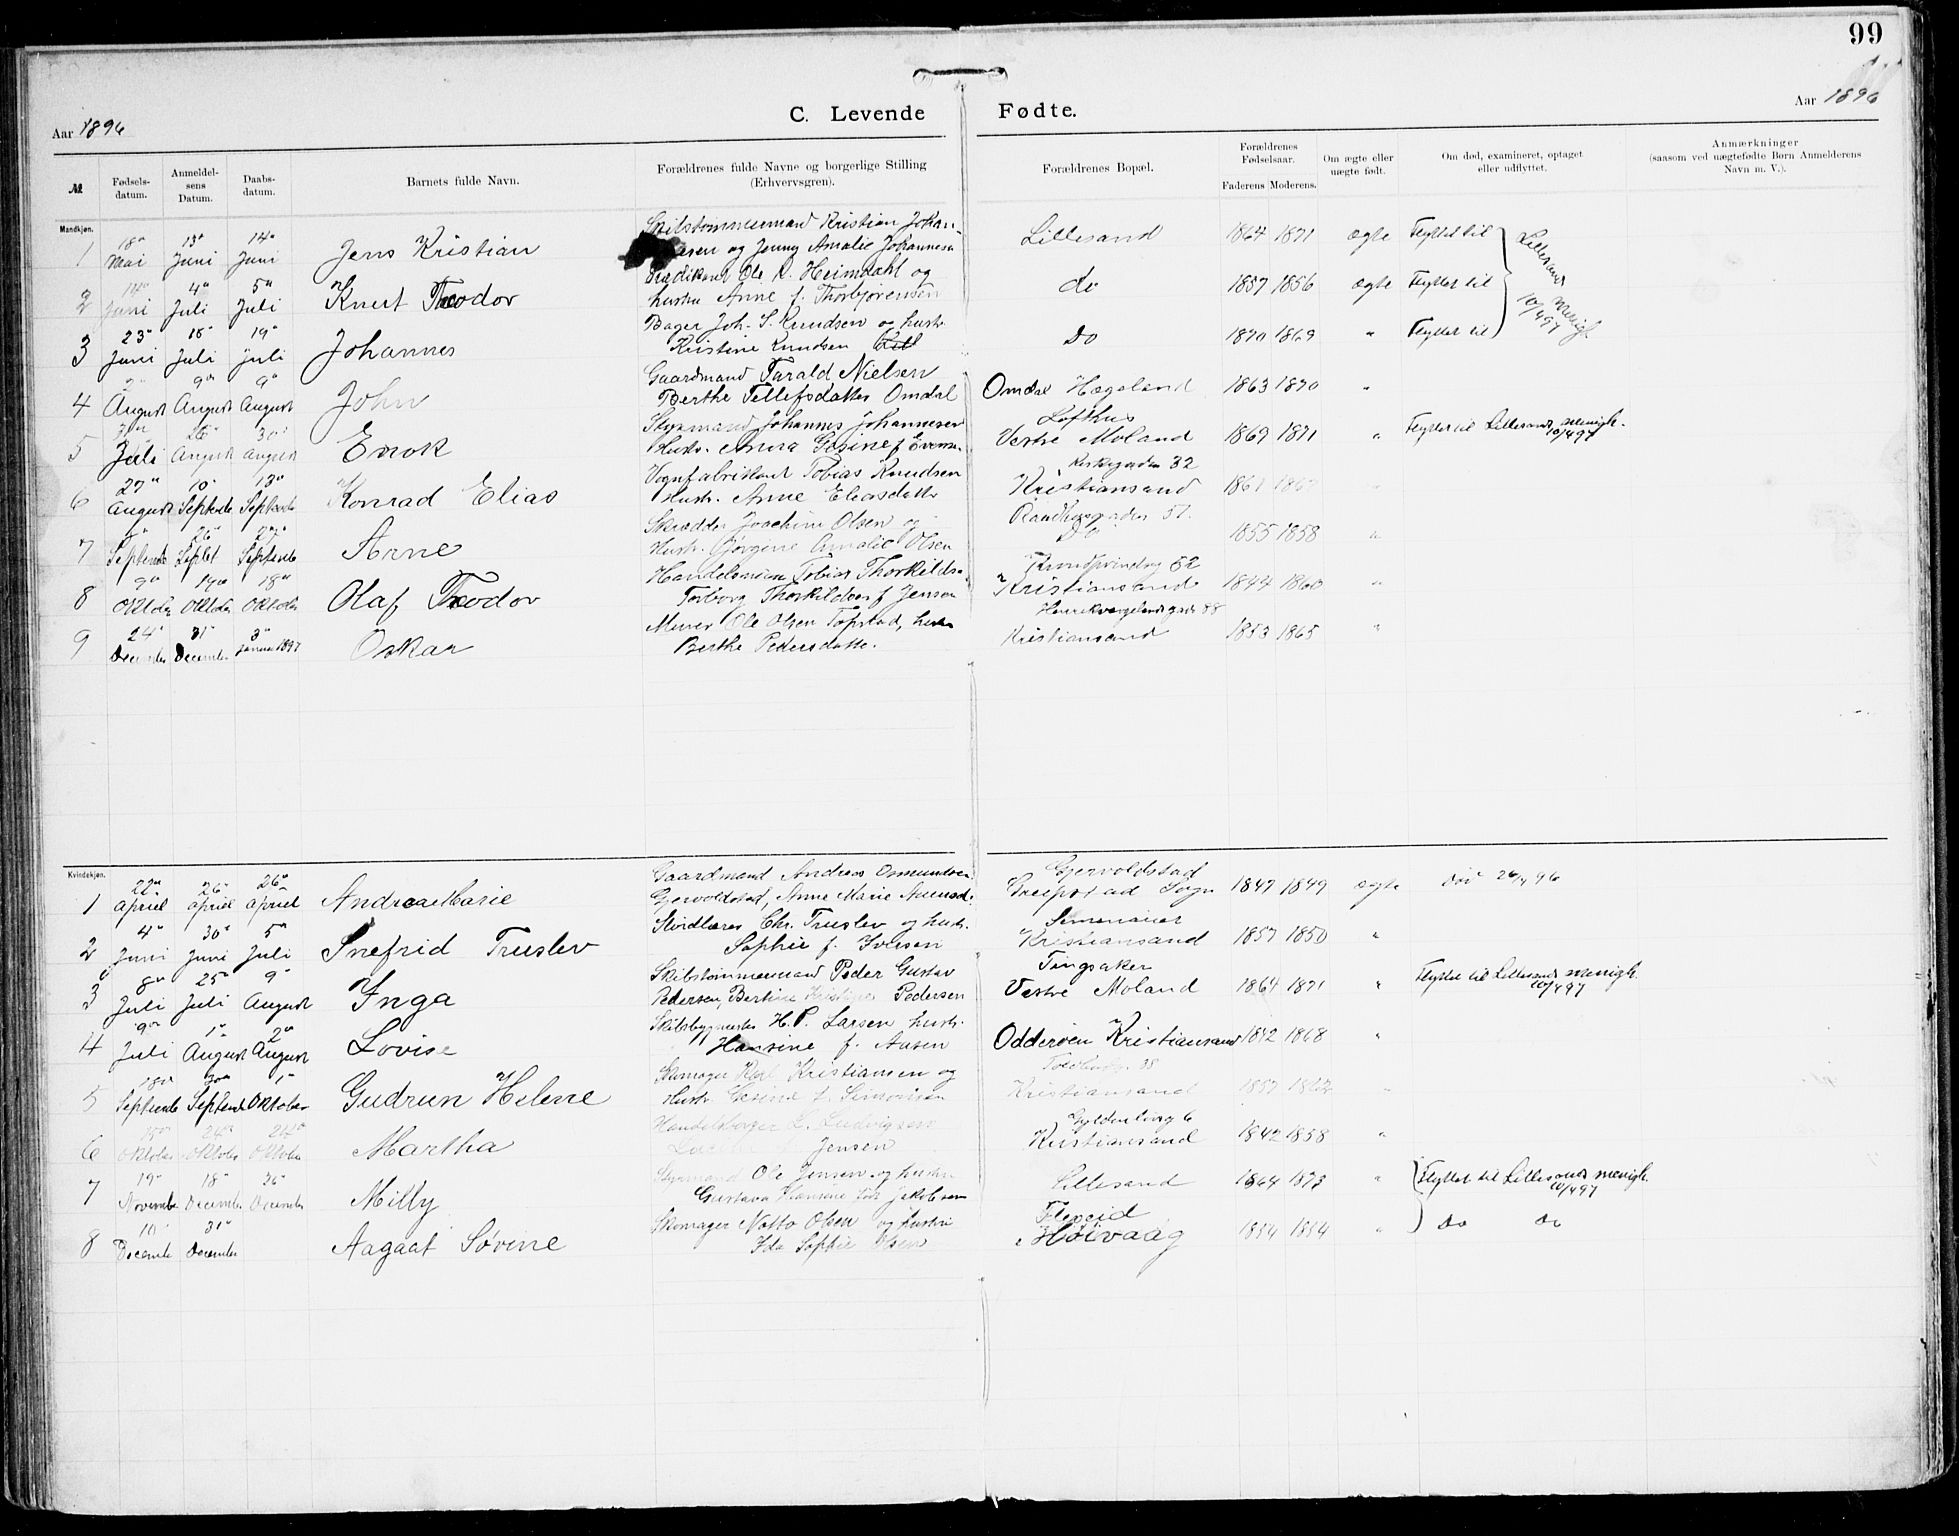 99
Aar 1896
C. Levende Fødte.
Aar 1896
№
Fødsels-datum.
Anmeldel-sens Datum.
Daabs-datum.
Barnets fulde Navn.
Forældrenes fulde Navne og borgerlige Stilling (Erhvervsgren).
Forældrenes Bopæl.
Forældrenes Fødselsaar.
Faderens Moderens.
Om ægte eller uægte født.
Om død, examineret, optaget eller udflyttet.
Anmærkninger (saasom ved uægtefødte Børn Anmelderens Navn m. V.).
Mandkjøn.
Skibstømmermand Kristian Johan-
1 18de Mai 13de Juni 14de Juni Jens Kristian og Jenny Amalie Johannesen Lillesand 1864 1871 ægte Flyttet til
Lillesands menigh. 10/4 97
Ole K. Heimdahl og
2 14de Juni 4de Juli 5te Juli Knut Teodor hustru Anne f. Thorbjørensen do 1857 1856 ægte Flyttet til
Bager Joh. S. Knudsen og hustr.
3 23de Juni 18de Juli 19de Juli Johannes Kristine Knudsen Do 1870 1869 " Flyttet til
Gaardmand Tarald Nielsen
4 August 9de August 9de August John Berthe Tellefsdatter Omdal Omdal Hægeland 1863 1870 "
Styrmand Johannes Johannesen Lofthus
5 Juli August 30 August Enok Hustr. Anna Gosine f Evensen Vestre Moland 1869 1871 " Flyttet til Lillesands menigh. 10/4 97
Vognfabrikant Tobias Knudsen Kirkegaden 32
6 27de August 10de Septembr 13de Septembr Konrad Elias Hustr. Anne Eleasdattr Kristiansand 1861
Skrædder Joachim Olsen og 51
7 Septembr 26 Septbr 27de Septembr Arne Hustr. Jørgine Amalie Olsen Do 1855 1858 "
Handelsmann Tobias Thorkilds. 52
8 9de Oktober 14de Oktober 18de Oktober Olaf Teodor Torborg Thorkildsen f Jensen Kristiansand 1844 1860 "
Murer Ole Olsen Topstad, hustr Henrikvergelandsgade 88
9 24de December 31de December 3de Januar 1897 Oskar Berthe Pedersdatter. Kristiansand 1853 1865 "
Kvindekjøn.
Gaardmand Andreas Osmundsen Gjervoldstad
1 22de April 26de April 26de April Andrea Marie Gjervoldstad, Anne Marie Sogn 1847 1849 ægte Død 26/4 96
Chr. Truslev og hustr.
2 4de Juni 30de Juni 5te Juli Snefrid Truslev Sophie f. Iversen Kristiansand 1857 1850 "
Skibstømmermand Peder Gustav Tingsaker
3 8de Juli 25de Juli 9de August Inga Pedersen, Bertine Kristine Pedersen Vestre Moland 1864 1871 " Flyttet til Lillesands menigh. 10/4 97
Skibsbygmester H. P. Larsen hustr.
4 9de Juli 1ste August 2den August Lovise Hansine f. Aasen Odderøen Kristiansand 1842 1868 "
Skomager Karl Kristiansen og 38
5 18de Septembr 30te Septembr 1ste Oktober Gudrun Helene Hustr. f. Simonsen Kristiansand 1857
Handelsborger L. Ludvigsen 6
6 Oktober 24de Oktober Oktober Martha Jensen Kristiansand 1842 1858 "
Styrmand Ole Jensen og hustru
7 19de November 18de December December Milly Gustava Hansine født Jakobsen Lillesand 1864 1873 " Flyttet til Lillesands menigh. 10/4 97
Skomager Notto Olsen og hustru
8 10 December 31te December Aagaat Sørine Ida Sophie Olsen Høivaag 1854 1854 " Do Do